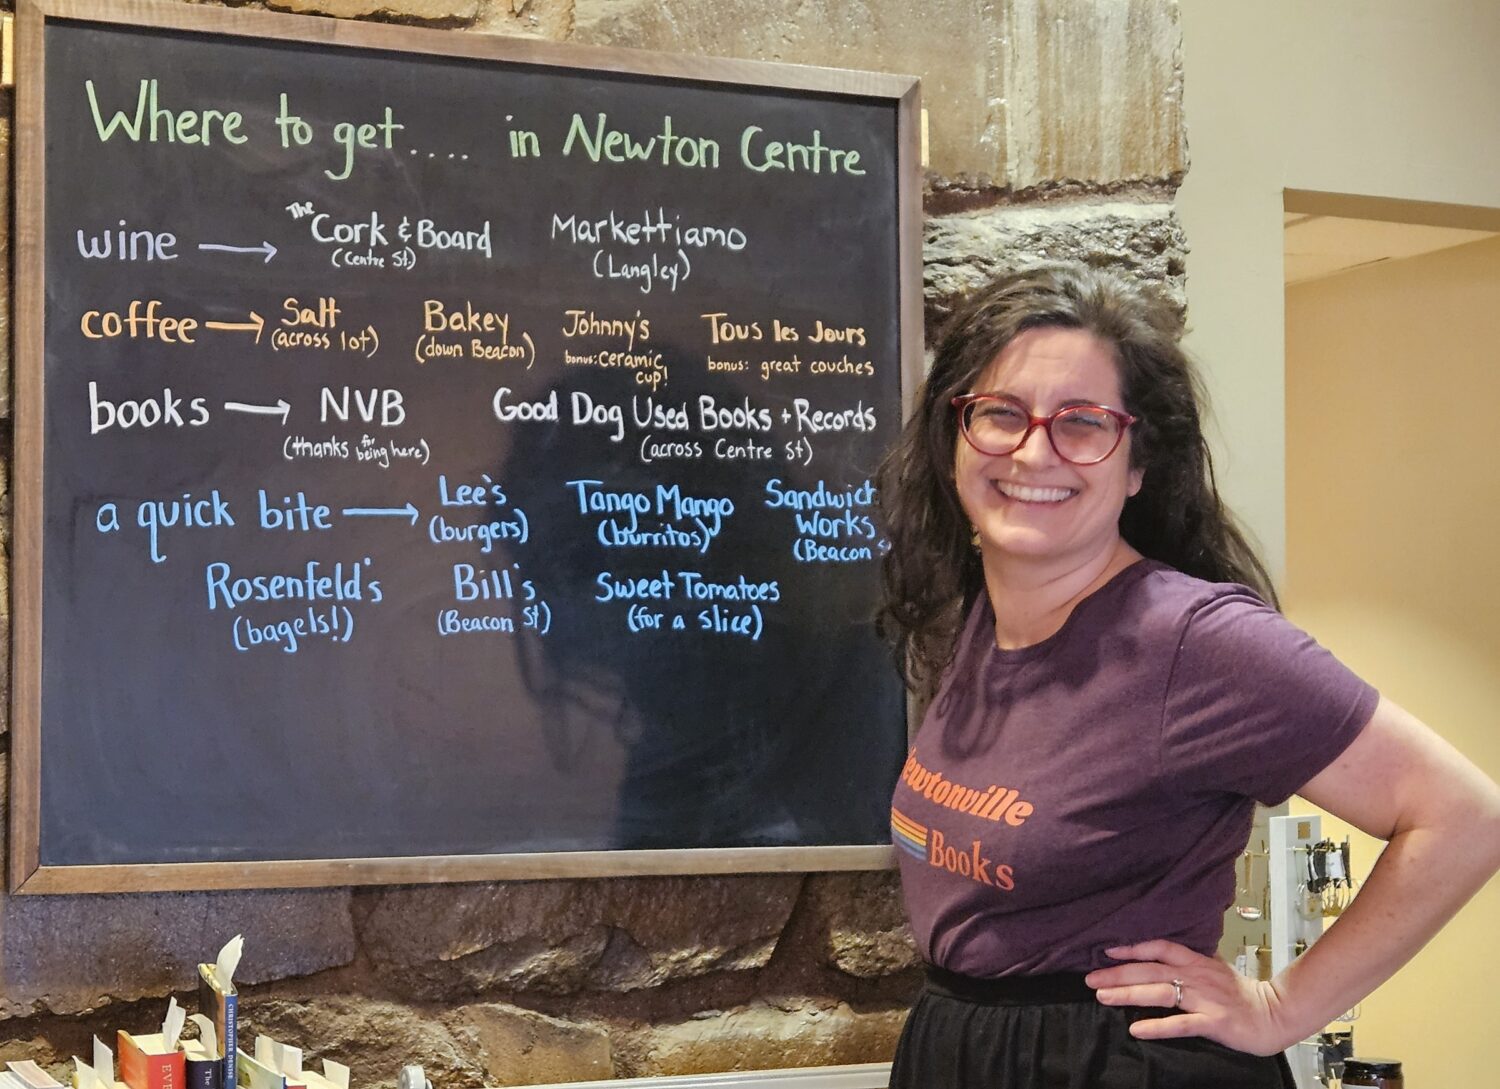 Where to get.... in Newton Centre
wine → The Cork & Board Markettiamo
(Centre St) (Langley)
coffee → Salt Bakey Johnny's Tous les Jours
(across lot) (down Beacon) bonus: ceramic cup! bonus: great couches
books → NVB Good Dog Used Books + Records
(thanks for being here) (across Centre St)
a quick bite → Lee's Tango Mango Sandwich Works
(burgers) (burritos) (Beacon St
Rosenfeld's Bill's Sweet Tomatoes
(bagels!) (Beacon St) (for a slice)
ewtonville
Books
CHRISTOPHER DENISE
EVE
The